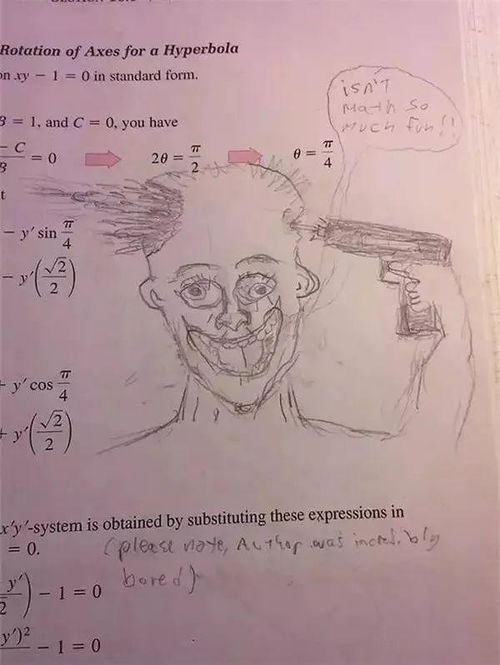 Rotation of Axes for a Hyperbola
on xy − 1 = 0 in standard form.
isn't
math so
much fun!!
B = 1, and C = 0, you have
− C
B
= 0
2θ = π/2
θ = π/4
t
− y′ sin π/4
− y′(√2/2)
+ y′ cos π/4
+ y′(√2/2)
x′y′-system is obtained by substituting these expressions in
= 0.
(please note, Author was incredibly
bored)
y′/2) − 1 = 0
y′)² − 1 = 0